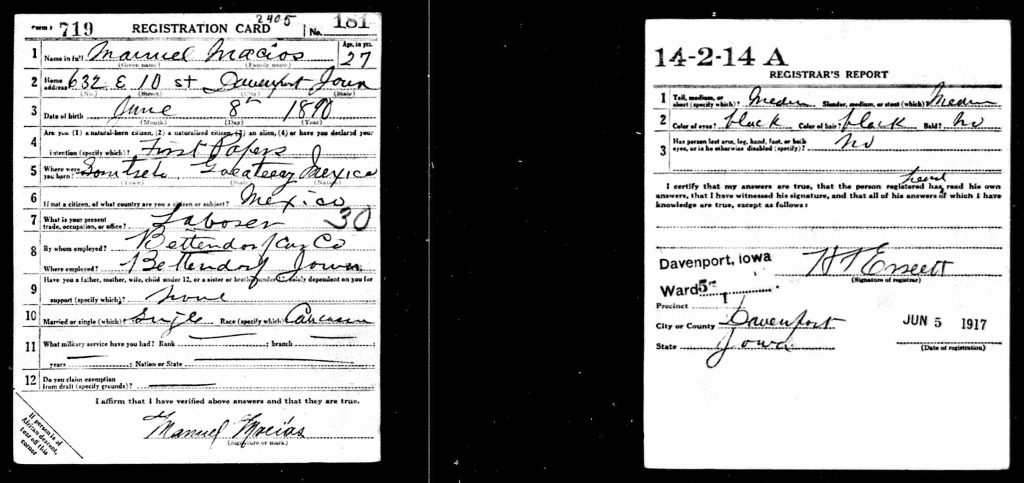 Form 1 719 REGISTRATION CARD 2405 No. 181
1 Name in full Manuel Macios Age, in yrs. 27
(Given name) (Family name)
2 Home address 632 E 10 st Davenport Iowa
(No.) (Street) (City) (State)
3 Date of birth June 8 1890
(Month) (Day) (Year)
Are you (1) a natural-born citizen, (2) a naturalized citizen, (3) an alien, (4) or have you declared your
4 intention (specify which)? First Papers
5 Where were you born? Mexico
(Town) (State) (Nation)
6 If not a citizen, of what country are you a citizen or subject? Mexico
7 What is your present trade, occupation, or office? Laborer 30
8 By whom employed? Bettendorf Car Co
Where employed? Bettendorf Iowa
9 Have you a father, mother, wife, child under 12, or a sister or brother under 12, solely dependent on you for
support (specify which)? none
10 Married or single (which)? Single Race (specify which) Caucasian
11 What military service have you had? Rank ; branch ;
years ; Nation or State
12 Do you claim exemption from draft (specify grounds)?
I affirm that I have verified above answers and that they are true.
Manuel Macias
(Signature or mark)
If person is of African descent, tear off this corner
14-2-14 A
REGISTRAR'S REPORT
1 Tall, medium, or short (specify which)? Medium Slender, medium, or stout (which)? Medium
2 Color of eyes? black Color of hair? black Bald? No
3 Has person lost arm, leg, hand, foot, or both eyes, or is he otherwise disabled (specify)? No
heard
I certify that my answers are true, that the person registered has read his own
answers, that I have witnessed his signature, and that all of his answers of which I have
knowledge are true, except as follows:
Davenport, Iowa
(Signature of registrar)
Ward 5
Precinct 1
City or County Davenport JUN 5 1917
State Iowa (Date of registration)